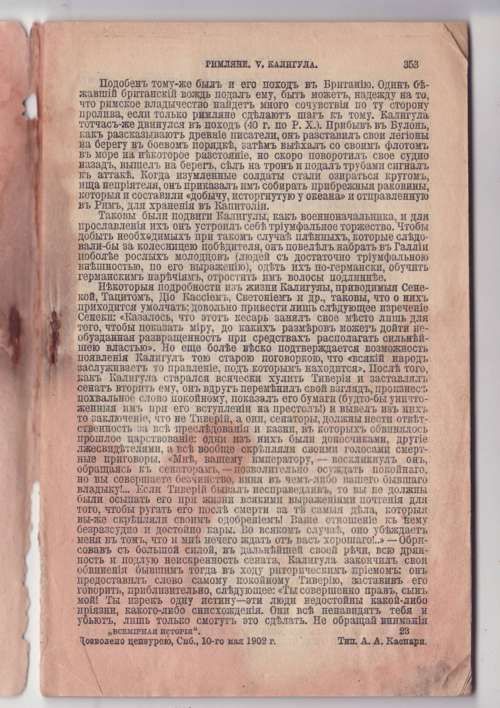 РИМЛЯНЕ. V. КАЛИГУЛА. 353
Подобенъ тому-же былъ и его походъ въ Британію. Одинъ бѣ-
жавшій британскій вождь подалъ ему, быть можетъ, надежду на то,
что римское владычество найдетъ много сочувствія по ту сторону
пролива, если только римляне сдѣлаютъ шагъ къ тому. Калигула
тотчасъ-же двинулся въ походъ (40 г. по Р. Х.). Прибывъ въ Булонь,
какъ разсказываютъ древніе писатели, онъ разставилъ свои легіоны
на берегу въ боевомъ порядкѣ, затѣмъ выѣхалъ со своимъ флотомъ
въ море на нѣкоторое разстояніе, но скоро поворотилъ свое судно
назадъ, вышелъ на берегъ, сѣлъ на тронъ и подалъ трубами сигналъ
къ аттакѣ. Когда изумленные солдаты стали озираться кругомъ,
ища непріятеля, онъ приказалъ имъ собирать прибрежныя раковины,
которыя и составили «добычу, исторгнутую у океана» и отправленную
въ Римъ, для храненія въ Капитоліи.
Таковы были подвиги Калигулы, какъ военноначальника, и для
прославленія ихъ онъ устроилъ себѣ тріумфальное торжество. Чтобы
добыть необходимыхъ при такомъ случаѣ плѣнныхъ, которые слѣдо-
вали-бы за колесницею побѣдителя, онъ повелѣлъ набрать въ Галліи
поболѣе рослыхъ молодцовъ (людей съ достаточно тріумфальною
внѣшностью, по его выраженію), одѣть ихъ по-германски, обучить
германскимъ нарѣчіямъ, отростить имъ волосы подлиннѣе.
Нѣкоторыя подробности изъ жизни Калигулы, приводимыя Сене-
кой, Тацитомъ, Діо Кассіемъ, Светоніемъ и др., таковы, что о нихъ
приходится умолчать: довольно привести лишь слѣдующее изреченіе
Сенеки: «Казалось, что этотъ цесарь занялъ свое мѣсто лишь для
того, чтобы показать міру, до какихъ размѣровъ можетъ дойти не-
обузданная развращенность при средствахъ располагать сильнѣй-
шею властью». Но еще болѣе вѣско подтверждается возможность
появленія Калигулъ тою старою поговоркою, что «всякій народъ
заслуживаетъ то правленіе, подъ которымъ находится». Послѣ того,
какъ Калигула старался всячески хулить Тиверія и заставлялъ
сенатъ вторить ему, онъ вдругъ перемѣнилъ свой взглядъ, произнесъ
похвальное слово покойному, показалъ его бумаги (будто-бы уничто-
женныя имъ при его вступленіи на престолъ) и вывелъ изъ нихъ
то заключеніе, что не Тиверій, а они, сенаторы, должны нести отвѣт-
ственность за всѣ преслѣдованія и казни, въ которыхъ обвинялось
прошлое царствованіе: одни изъ нихъ были доносчиками, другіе
лжесвидѣтелями, а всѣ вообще скрѣпляли своими голосами смерт-
ные приговоры. «Мнѣ, вашему императору, — воскликнулъ онъ,
обращаясь къ сенаторамъ, — позволительно осуждать покойнаго,
но вы совершаете безчинство, виня въ чемъ-либо вашего бывшаго
владыку!... Если Тиверій бывалъ несправедливъ, то вы не должны
были осыпать его при жизни всякими выраженіями почтенія для
того, чтобы ругать его послѣ смерти за тѣ самыя дѣла, которыя
вы-же скрѣпляли своимъ одобреніемъ! Ваше отношеніе къ нему
безразсудно и достойно кары. Во всякомъ случаѣ, оно убѣждаетъ
меня въ томъ, что и мнѣ нечего ждать отъ васъ хорошаго!..» — Обри-
совавъ съ большой силой, въ дальнѣйшей своей рѣчи, всю дрян-
ность и подлую неискренность сената, Калигула закончилъ свои
обвиненія бывшимъ тогда въ ходу риторическимъ пріемомъ: онъ
предоставилъ слово самому покойному Тиверію, заставивъ его
говорить, приблизительно, слѣдующее: «Ты совершенно правъ, сынъ
мой! Ты изрекъ одну истину—эти люди недостойны какой-либо
пріязни, какого-либо снисхожденія. Они всѣ ненавидятъ тебя и
убьютъ, лишь только смогутъ это сдѣлать. Не обращай вниманія
„ВСЕМІРНАЯ ИСТОРІЯ“. 23
Дозволено цензурою, Спб., 10-го мая 1902 г. Тип. А. А. Каспари.